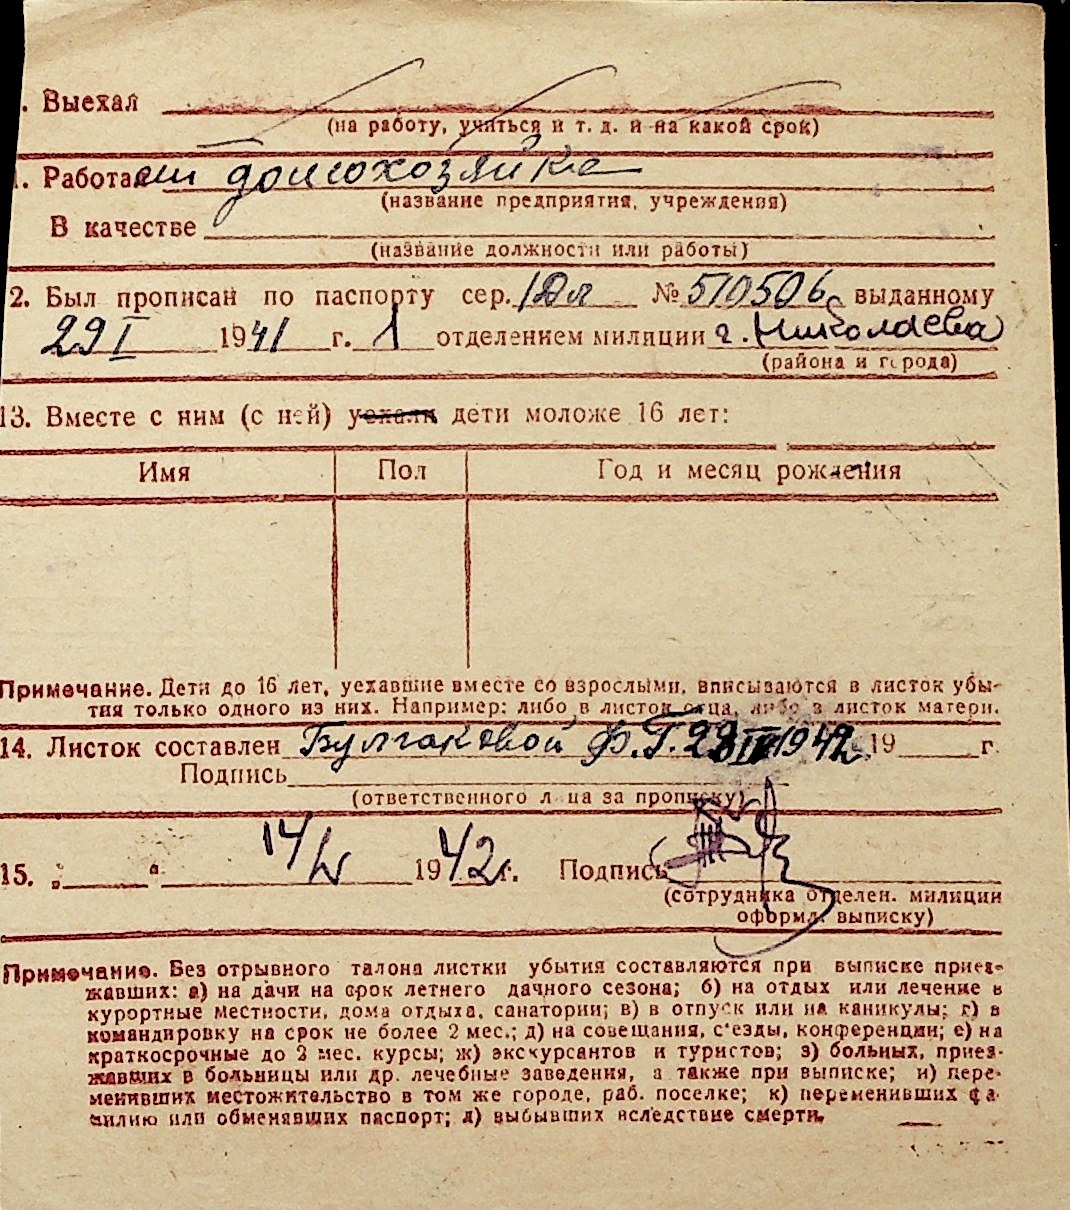 . Выехал
(на работу, учиться и т. д. и на какой срок)
1. Работал домохозяйка
(название предприятия, учреждения)
В качестве
(название должности или работы)
2. Был прописан по паспорту сер. № 510506 выданному
29 I 1941 г. 1 отделением милиции г. Николаева
(района и города)
13. Вместе с ним (с ней) уехали дети моложе 16 лет:
Имя Пол Год и месяц рождения
Примечание. Дети до 16 лет, уехавшие вместе со взрослыми, вписываются в листок убы-
тия только одного из них. Например: либо в листок отца, либо в листок матери.
14. Листок составлен Булгаковой Ф.Г. 1942 19 г.
Подпись
(ответственного лица за прописку)
15. „ “ 14/V 1942 г. Подпись
(сотрудника отделен. милиции
оформл. выписку)
Примечание. Без отрывного талона листки убытия составляются при выписке приез-
жавших: а) на дачи на срок летнего дачного сезона; б) на отдых или лечение в
курортные местности, дома отдыха, санатории; в) в отпуск или на каникулы; г) в
командировку на срок не более 2 мес.; д) на совещания, с'езды, конференции; е) на
краткосрочные до 2 мес. курсы; ж) экскурсантов и туристов; з) больных, приез-
жавших в больницы или др. лечебные заведения, а также при выписке; и) пере-
менивших местожительство в том же городе, раб. поселке; к) переменивших фа-
милию или обменявших паспорт; л) выбывших вследствие смерти.